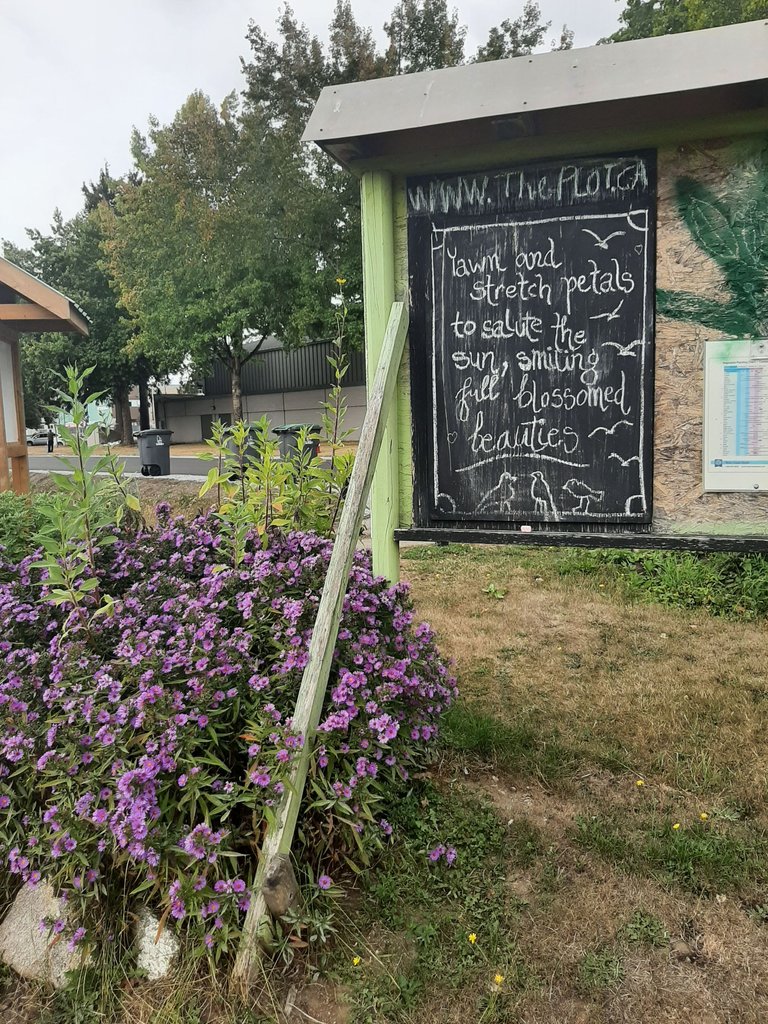 WWW.ThePLOT.CA
Yawn and
stretch petals
to salute the
sun, smiling
full blossomed
beauties